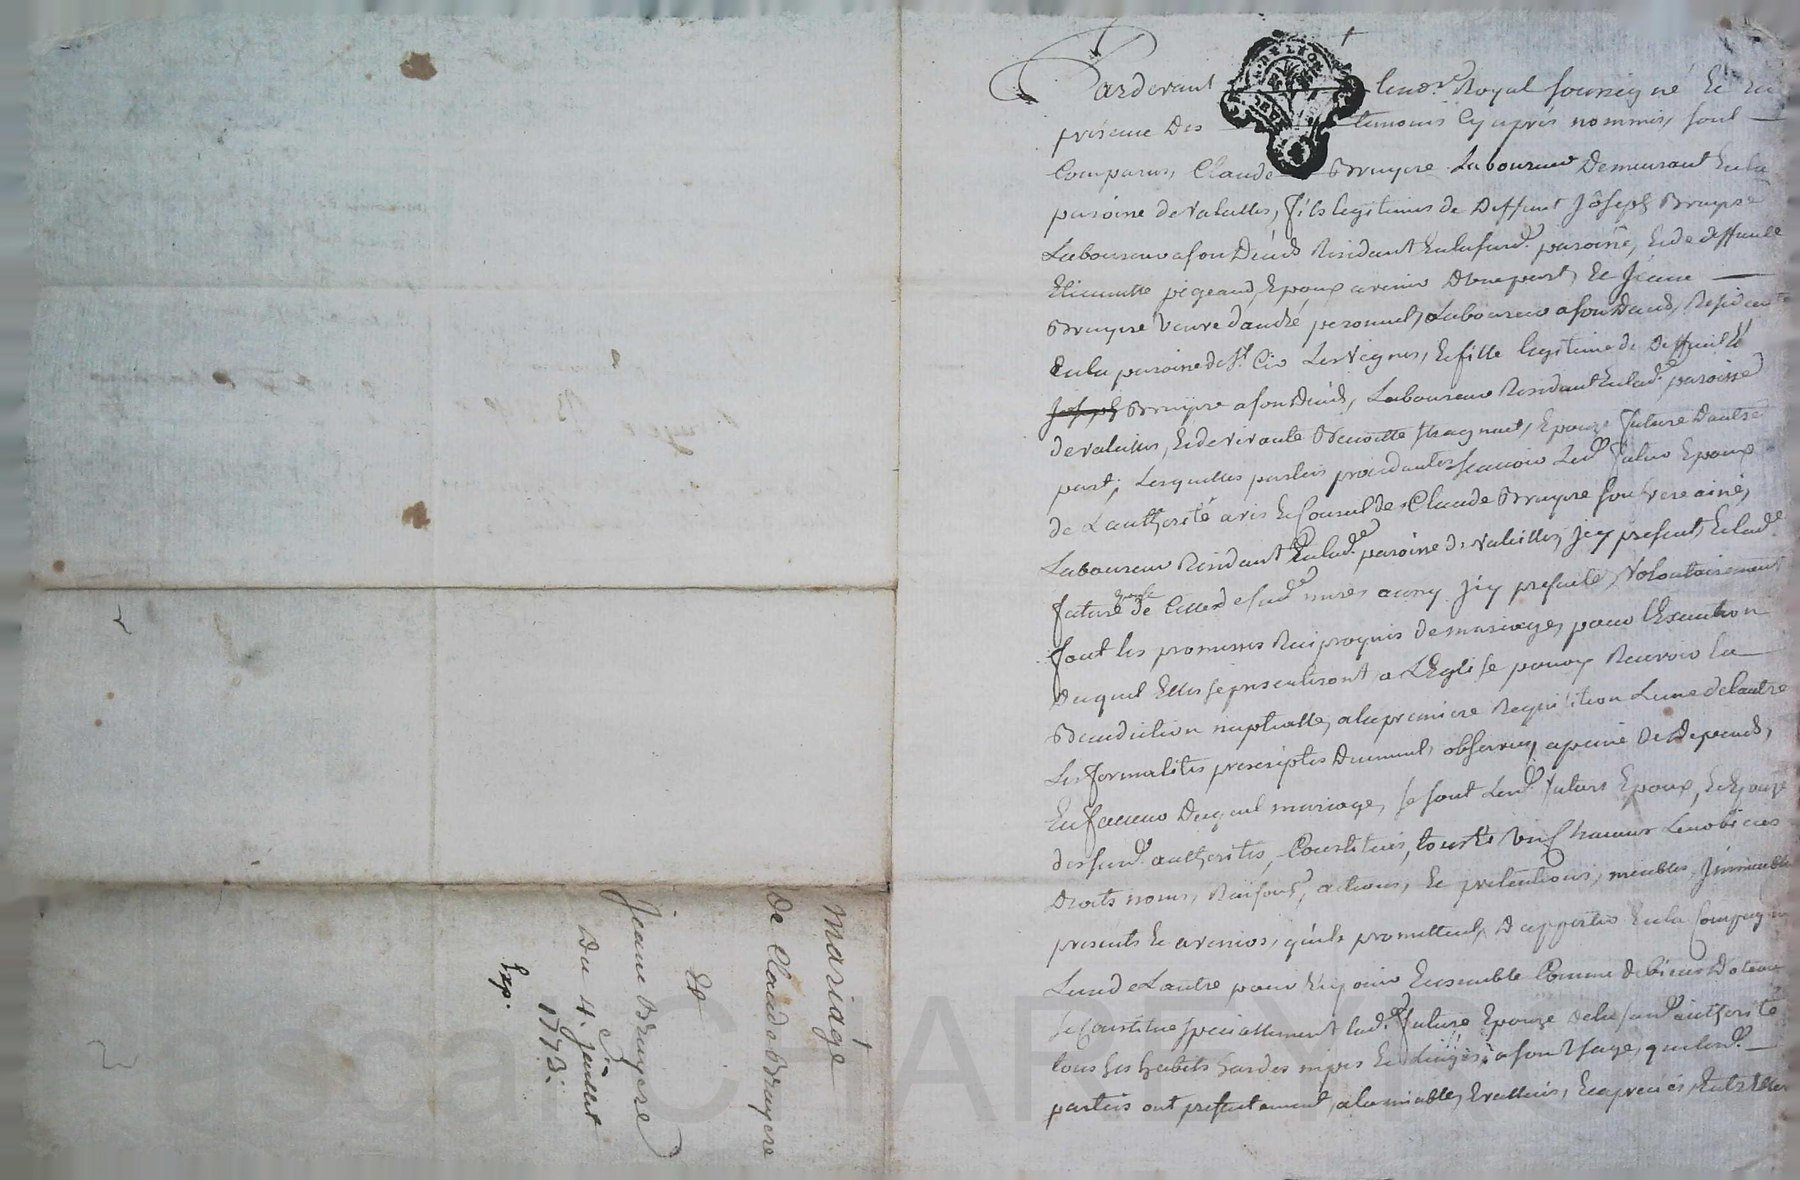 Mariage
De Claude Bruyere
Et
Jeanne Bruyere
Du 4. Juillet
1773.
Exp.
Pardevant le no.re Royal soussigné Et En
présence des temoins Cy après nommés, sont
Comparus, Claude Bruyere Laboureur Demeurant En la
paroisse de valeilles, fils legitimes de Deffunt Jôseph Bruyere
Laboureur a son Décéds Residant En la susd.e paroisse, Et de deffunte
pigeaud, Epoux avenir D'une part, Et Jeanne
Bruyere Veuve d'andré Laboureur a son Décéds, Residante
En la paroisse de S.t Cir Les Vignes, Et fille legitime de Deffunt
Joseph Bruyere a son Décéds, Laboureur Residant En lad.e paroisse
de valeilles, Et de vivante Benoitte Epouze future D'autre
part, Lesquelles parties procédantes scauoir Led. futur Epoux
de L'authorité avis Et Conseil de Claude Bruyere son frere ainé,
Laboureur Residant En lad.e paroisse de valeilles, Jcy présent, Et lad.e
future de Celles de sad.e mere aussy Jcy presente, Volontairement
font les promesses Reciproques de mariage, pour l'Execution
Duquel Elles se presenteront a L'Eglise pour y Recevoir la
Benediction nuptialle, a la premiere Requisition L'une de l'autre
Les formalités prescriptes Duement observées, a peine de Depends,
En faveur Duquel mariage, se sont Led. futurs Epoux, Et Epouze
des susd. authorités, Constitués, tous Et Leurs biens
Droits noms, Raisons, actions, Et pretentions, meubles Jmmeubles
presents Et avenirs, qu'ils promettent D'apporter En la Compagnie
L'un de L'autre pour En jouir Ensemble Comme de biens Dotaux
se Constitue specialement lad.e future Epouze de la susd. authorité
tous ses habits hardes nipes Et Linges a son Usage, que lesd.
parties ont presentement, a l'amiable, Evallués, Et apreciés, Entr'elles